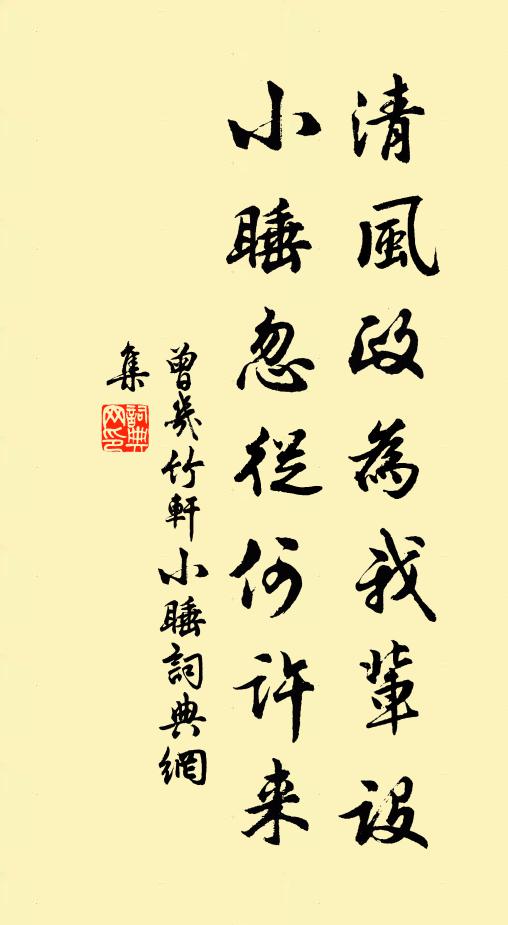 清風政為我輩設
小睡忽從何許来
曾幾竹軒小睡詞典網
集
詞典網印